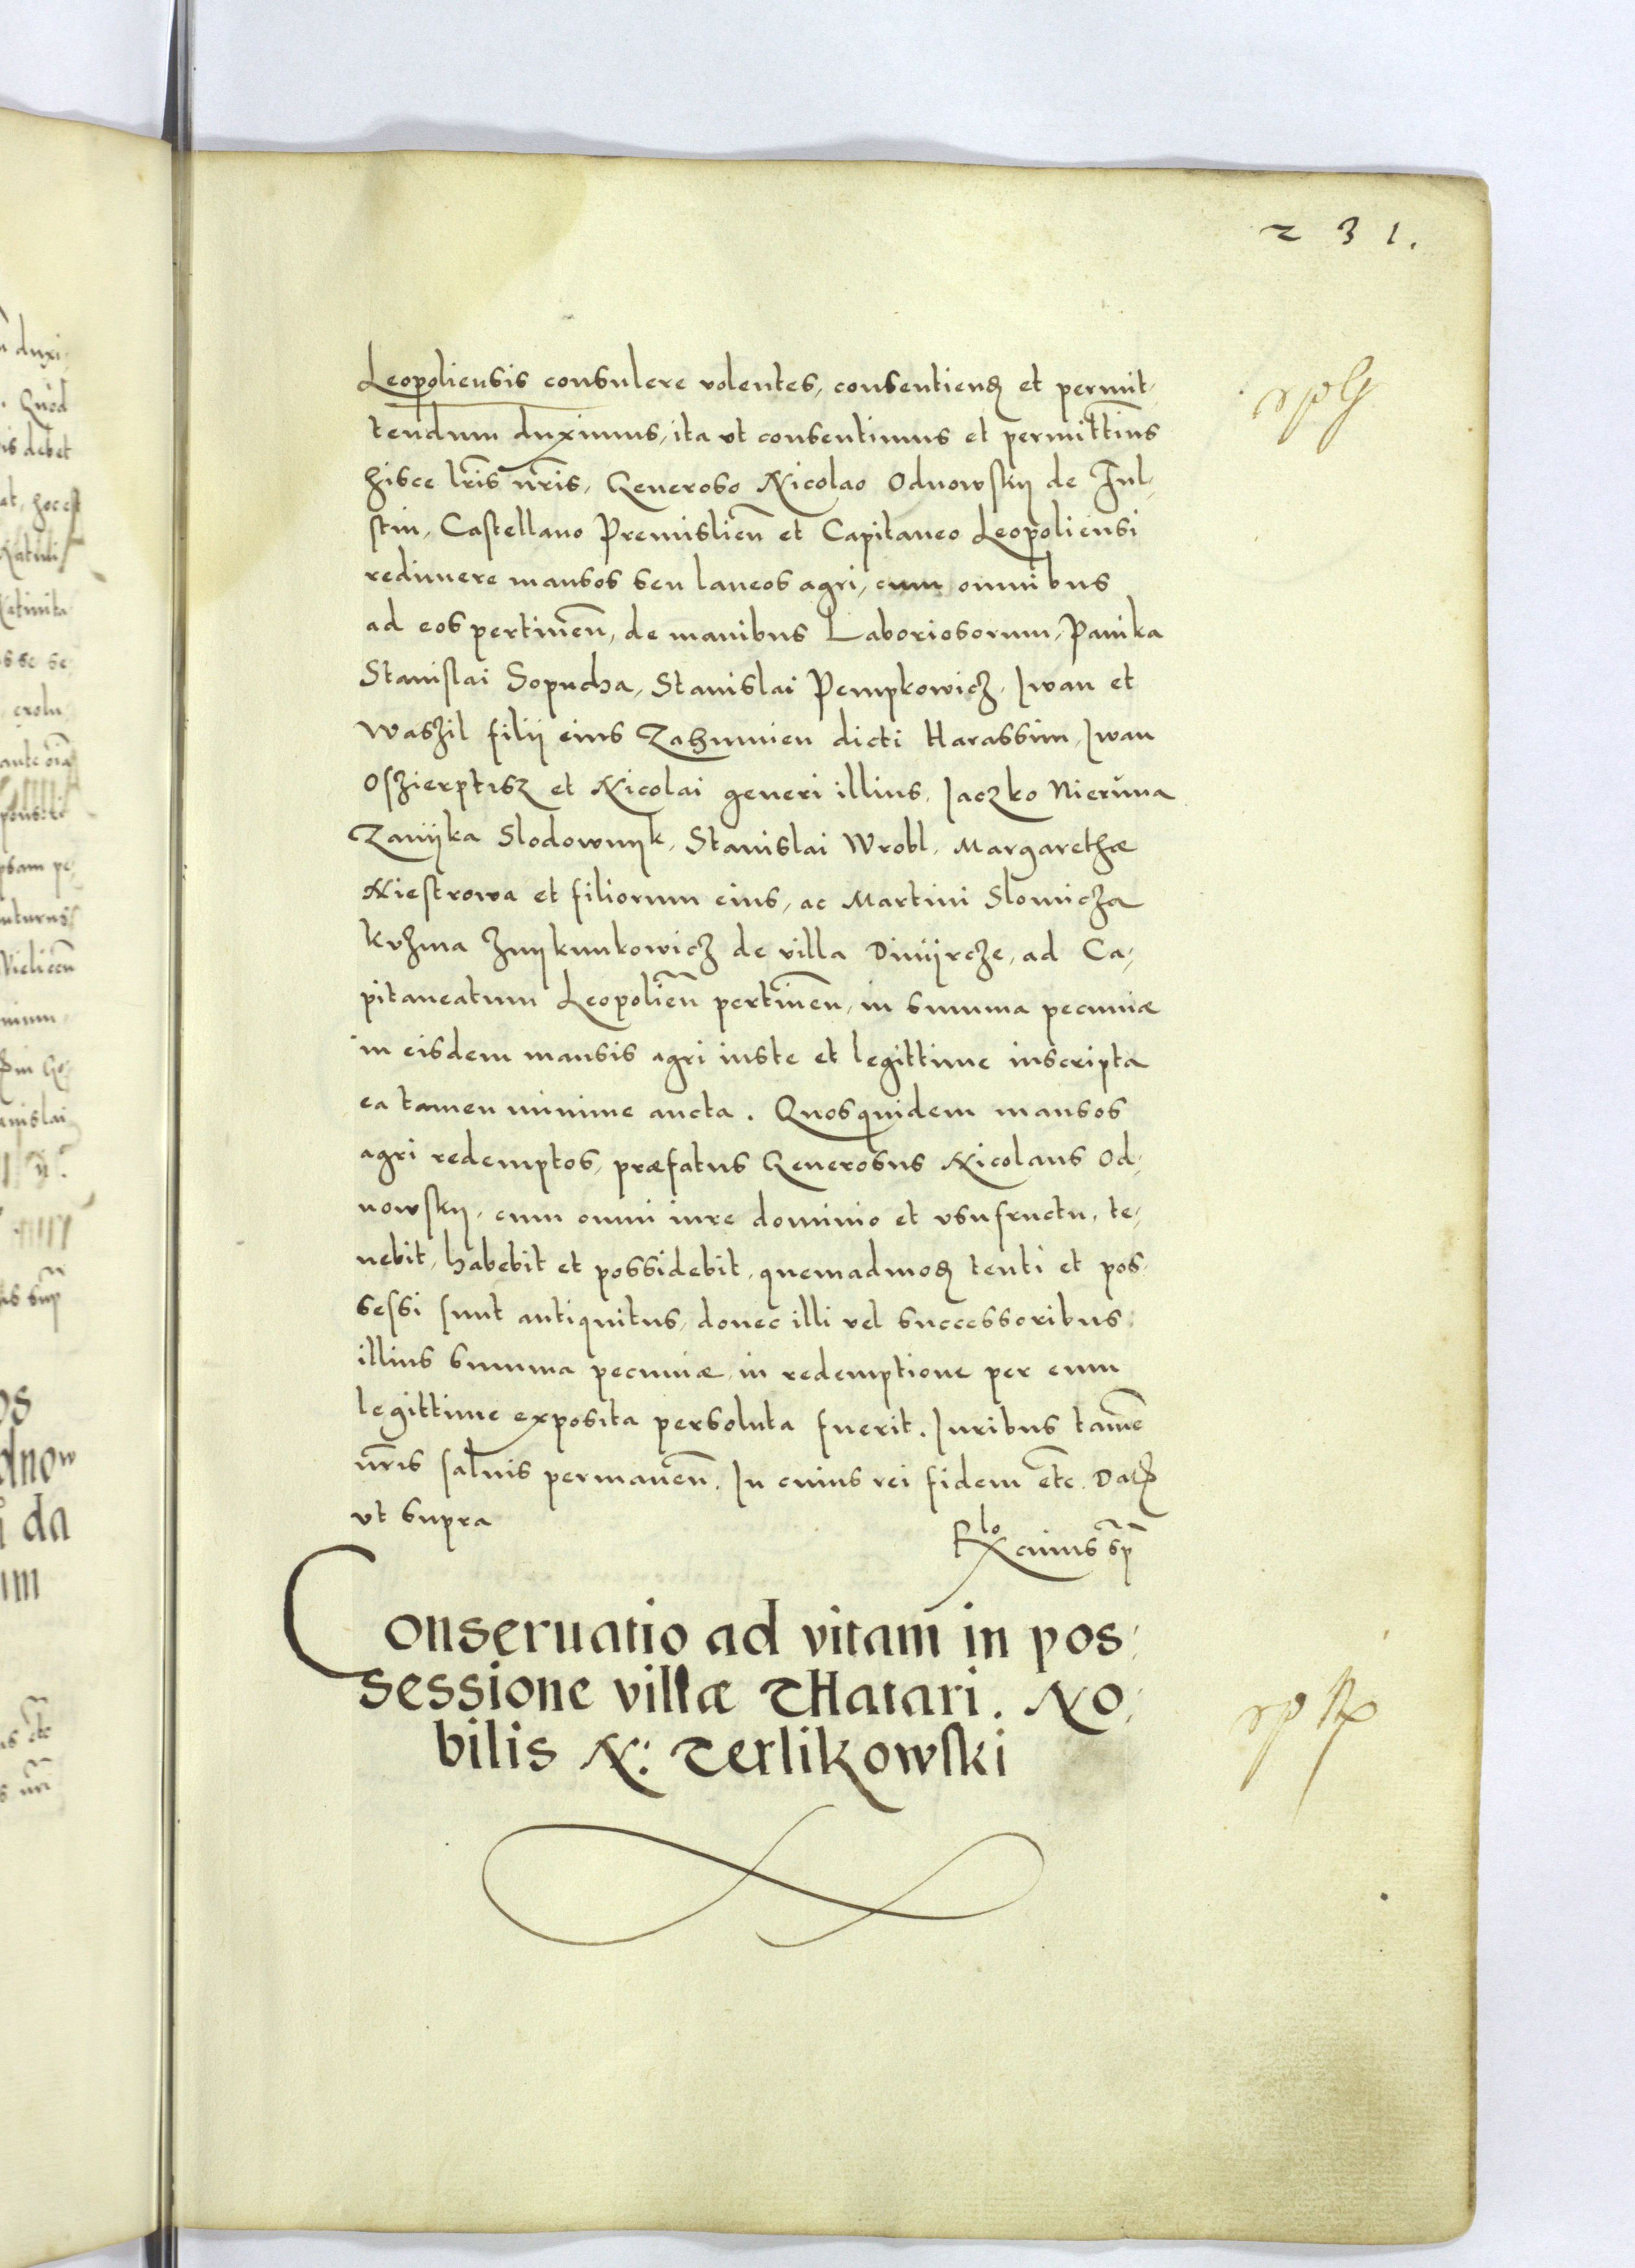 231.
Leopoliensis consulere volentes, consentiend et permit,
tendum duximus, ita vt consentimus et permittims
hisce lris nris, Generoso Nicolao Odnowskij de Ful,
stin, Castellano Premislien et Capitaneo Leopoliensi
redimere mansos seu laneos agri, cum omnibus
ad eos pertinen, de manibus Laboriosorum, Panika
Stanislai Sopucha, Stanislai Pempkowicz, Iwan et
Waszil filij eius Zahumien dicti Harassim, Iwan
Oszierptisz et Nicolai generi illius, Iaczko Nieruna
Zanijka Slodownijk, Stanislai Wrobl, Margarethæ
Niestrowa et filiorum eius, ac Martini Slomicza
kvzma de villa Dmijrcze, ad Ca,
pitaneatum Leopolien pertinen, in summa pecuniæ
in eisdem mansis agri iuste et legittime inscripta
ea tamen minime aucta. Quosquidem mansos
agri redemptos, præfatus Generosus Nicolaus Od,
nowskij, cum omni iure dominio et vsufructu, te,
nebit, habebit et possidebit, quemadmod tenti et pos,
sessi sunt antiquitus, donec illi vel successoribus
illius summa pecuniæ, in redemptione per eum
legittime exposita persoluta fuerit. Iuribus tamē
nris saluis permanen. In cuius rei fidem etc. Dat
vt supra
Rlo cuius sp
Conseruatio ad vitam in pos,
sessione villæ THatari. No,
bilis N: Terlikowski